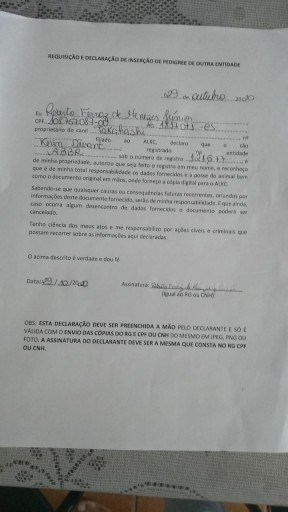 REQUISIÇÃO E DECLARAÇÃO DE INSERÇÃO DE PEDIGREE DE OUTRA ENTIDADE
29 de outubro 2020
Eu Roberto Ferraz de Menezes Júnior
CPF RG nº
proprietário do canil Takahashi
filiado ao ALRC, declaro que o cão
registrado entidade
sob o número de registro e
de minha propriedade, autorizo que seja feito o registro em meu nome, e reconheço
que é de minha total responsabilidade os dados fornecidos e a posse do animal bem
como o documento original em mãos, onde forneço a cópia digital para o ALRC.
Sabendo-se que qualquer causas ou consequências futuras recorrentes, oriundos por
informações deste documento fornecidos, serão de minha responsabilidade. E que ainda,
caso ocorra algum desencontro de dados fornecidos o documento poderá ser
cancelado.
Tenho ciência dos meus atos e me responsabilizo por ações cíveis e criminais que
possam recorrer sobre as informações aqui declaradas.
O acima descrito é verdade e dou fé.
Data: 29/10/2020 Assinatura:
(Igual ao RG ou CNH)
OBS: ESTA DECLARAÇÃO DEVE SER PREENCHIDA A MÃO PELO DECLARANTE E SÓ É
VÁLIDA COM O ENVIO DAS CÓPIAS DO RG E CPF OU CNH DO MESMO EM JPEG, PNG OU
FOTO. A ASSINATURA DO DECLARANTE DEVE SER A MESMA QUE CONSTA NO RG CPF
OU CNH.